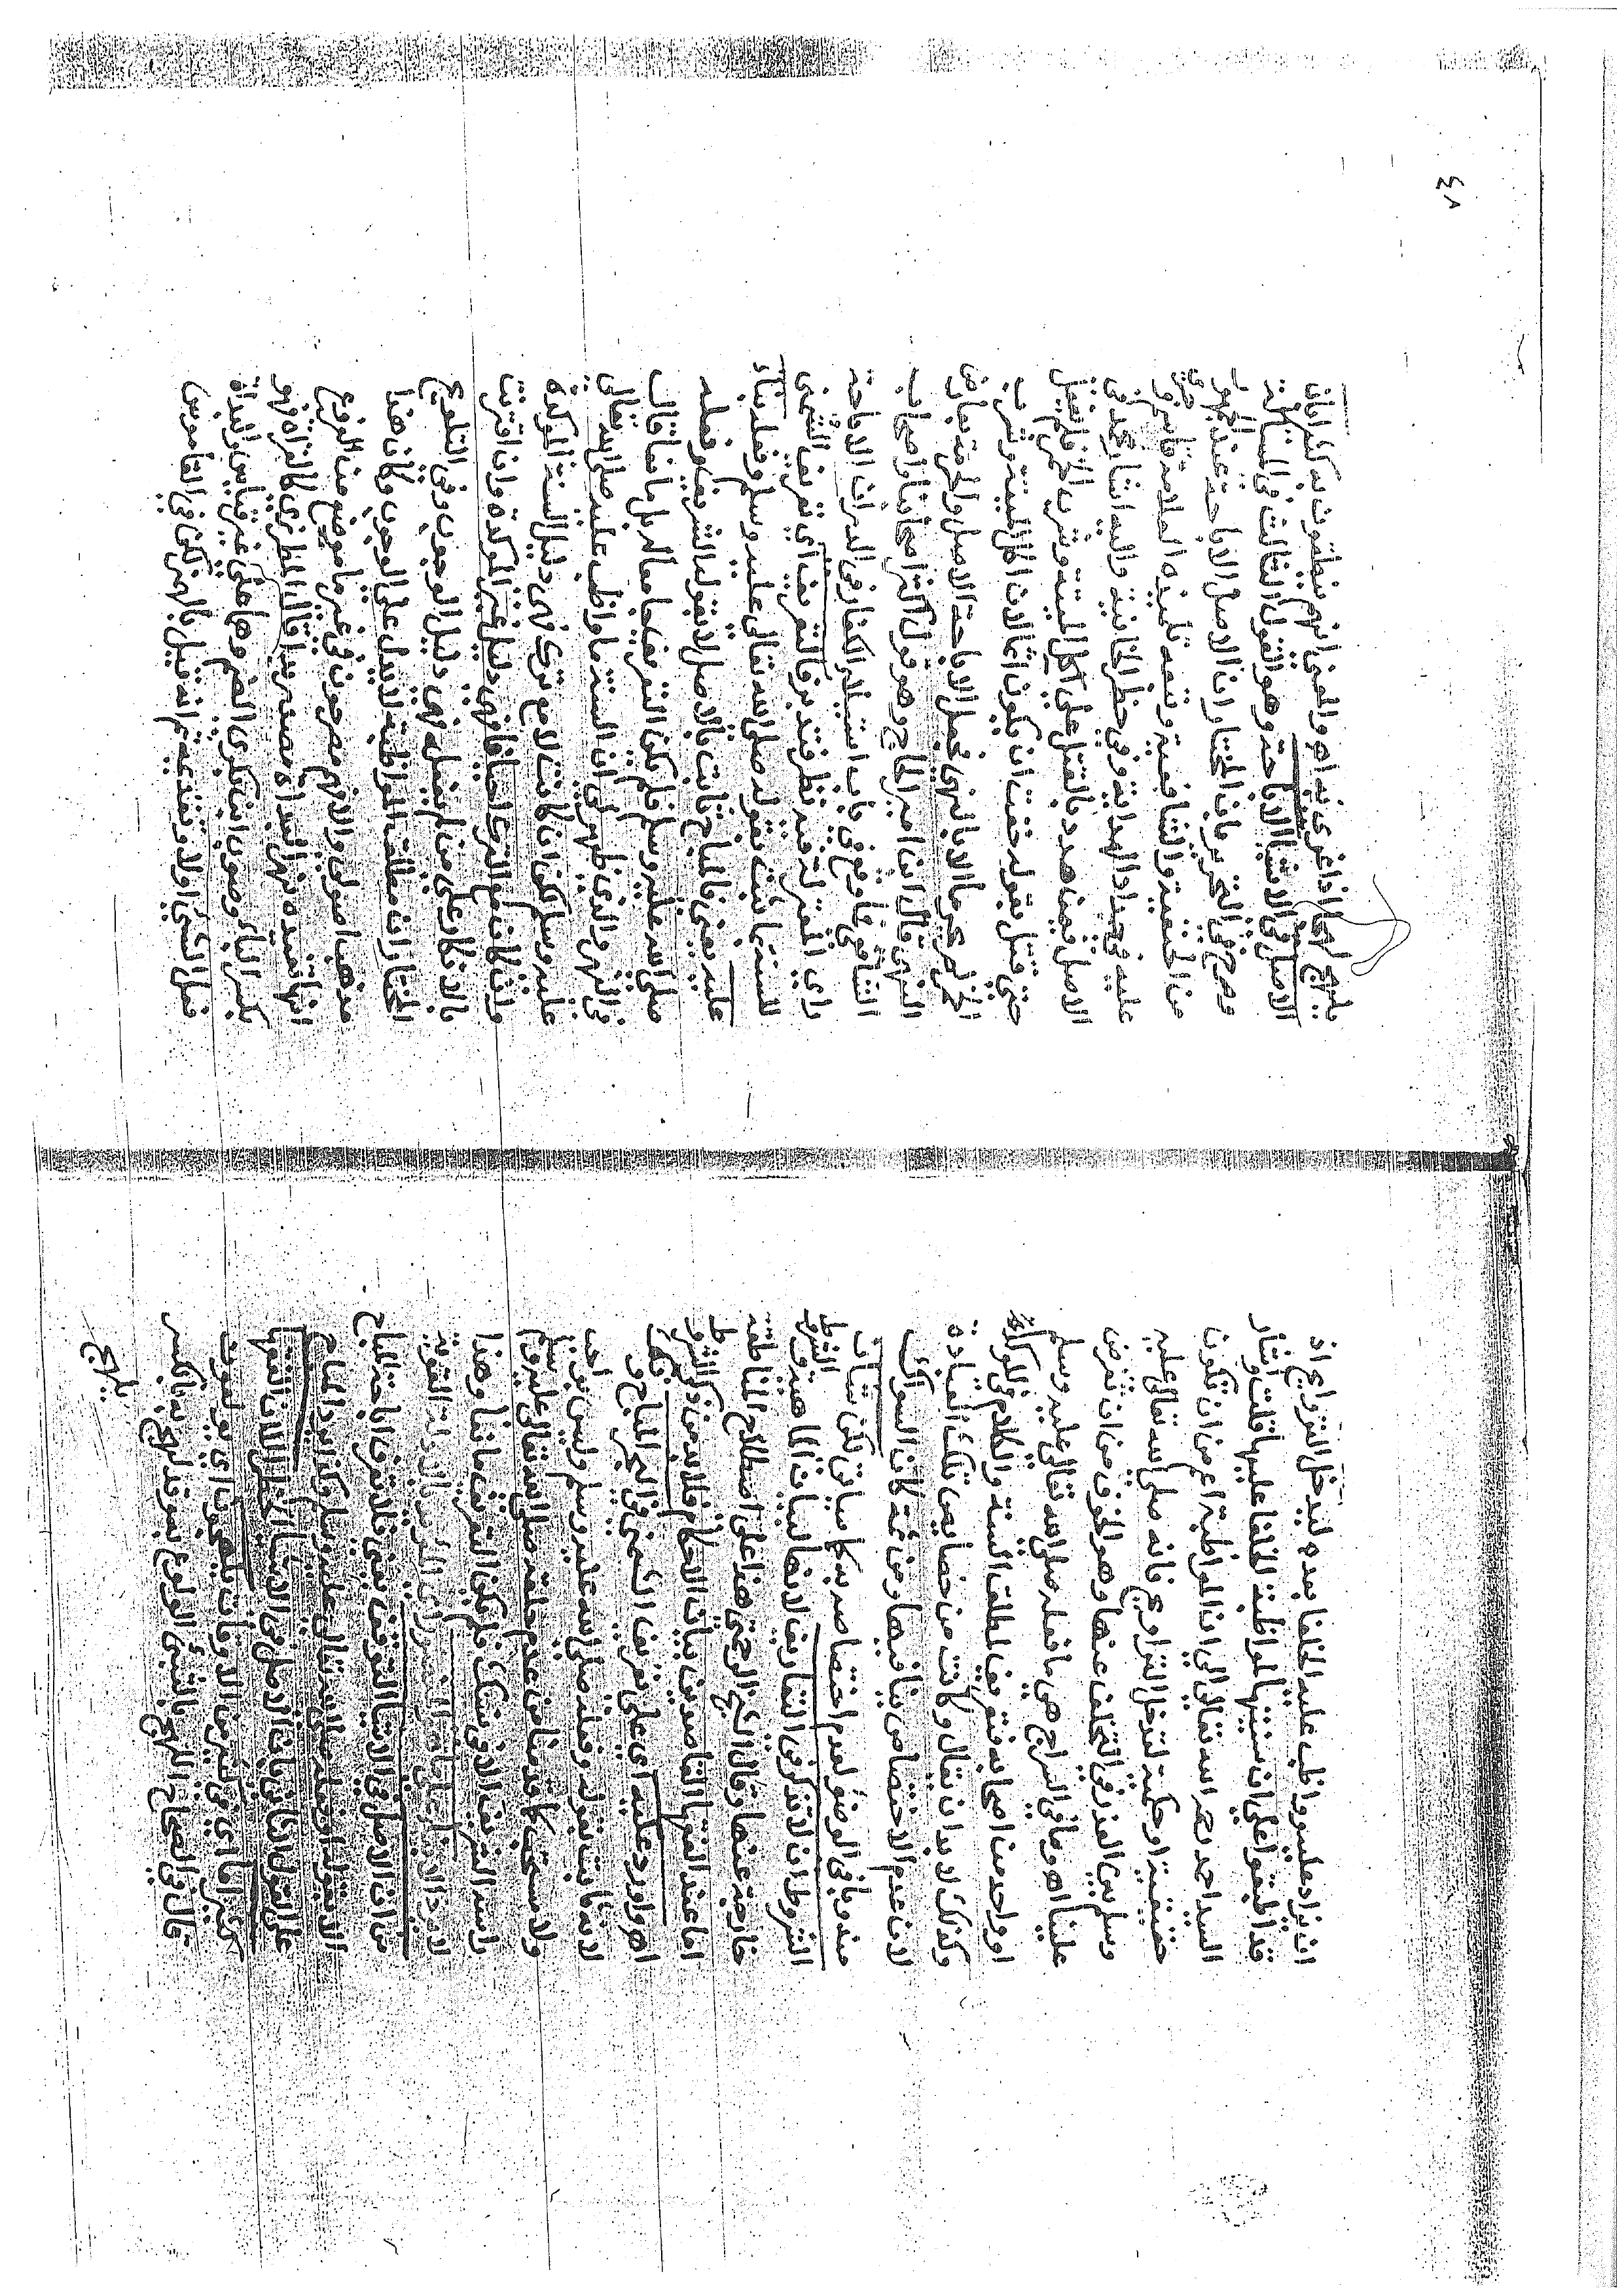 ان يزاد عليه وواظب عليه الخلفا بعده ليدخل التراويح اذ
قد اطبقوا على ان سنيتها لمواظبة الخلفا عليها قلت واشار
السيد احمد رحمه الله تعالى الى ان المواظبة اعم من ان تكون
حقيقية او حكمية لتدخل التراويح فانه صلى الله تعالى عليه
وسلم بين العذر في التخلف عنها وهو الخوف من ان تفرض
علينا اهـ وما في السراج هي ما فعله صلى الله تعالى عليه وسلم
او واحد من اصحابه فتعريف لمطلق السنة والكلام في المؤكدة
وكذلك لا بد ان يقال ولو كانت من خصايص تلك العبادة
لان عدم الاختصاص ينافيها ومن ثمه كان السواك
مندوبا في الوضوء لعدم اختصاصه به كما سياتي لكن شان
الشروط ان لا تذكر في التعاريف لانها لبيان الماهية والشروط
خارجة عنها وقال الشيخ الرحمتي هذا على اصطلاح المناطقة
اما عند الفقها المقاصد من بيان الاحكام فلا بد من ذكر الشروط
اهـ واورد عليه اي على تعريف الشمني في البحر المباح و
لانه ثابت بقوله وفعله صلى الله عليه وسلم وليس بواجب
ولا مستحب كما قدمنا من عدم خلقه صلى الله تعالى عليه وسلم
راسه الشريف الا في نسك فلم يكن التعريف مانعا وهذا
لا يرد الا بناء على ما هو المنصور اي المؤيد بالادلة القوية
من ان الاصل في الاشيا التوقف يعني فلا تعرف اباحة المباح
الا بقوله او فعله صلى الله تعالى عليه وسلم وكذا يرد المباح
على القول الثاني بان الاصل في الاشيا الحظر الا ان الفقها
كثيرا ما اي في كثير من الاوقات يلهجون اي يولعون
قال في الصحاح اللهج بالشيء الولوع به وقد لهج به بالكسر
يلهج
٤٨
يلهج لهجا اذا غري به اهـ والمعنى انهم ينطقون به كثيرا بان
الاصل في الاشيا الاباحة وهو القول الثالث في المسالة
وصرح في التحرير بان المختار ان الاصل الاباحة عند الجمهور
من الحنفية والشافعية وتبعه تلميذه العلامة قاسم وجرى
عليه في حداد الهداية وفي حظر الخانية واليه اشار محمد في
الاصل فيمن هدد بالقتل على اكل الميتة وشرب الخمر فلم يفعل
حتى قتل بقوله خفت ان يكون اثما لان اكل الميتة وشرب
الخمر لم يحرما الا بالنهي فجعل الاباحة الاصل والحرمة بعارض
النهي قال ابن امير الحاج وهو قول اكثر اصحابنا واصحاب
الشافعي فما وقع في باب استيلاء الكفار في الدر ان الاباحة
راي المعتزلة فيه نظر فتدبر فالتعريف اي تعريف الشمني
للسنة بما ثبت بقوله صلى الله تعالى عليه وسلم وفعله بناء
عليه يعني فالمباح ثابت بالاصل لا بقوله الشريف وفعله
صلى الله عليه وسلم فلم يكن التعريف جامعا لا بل مانعا قال
في النهر والذي ظهر لي ان السنة ما واظب عليه صلى الله تعالى
عليه وسلم لكن ان كانت لا مع ترك فهي دليل السنة المؤكدة
وان كان مع الترك احيانا فهي دليل غير المؤكدة وان اقترنت
بالانكار على من لم يفعله فهي دليل الوجوب وفي التلويح
المختار ان مطلق المواظبة لا يدل على الوجوب وكان هذا
مذهبنا اصولي والا فهم مصرحون في غير ما موضع من الفروع
انها تفيده نهر البداة مصدر بدا قال المطرزي كالقراة فهو
بكسر الباء وصوب ابن بري الضم وهما على غير قياس والبداة
فعل الشي اولا وتقديمه ثم انه قيل بالهمز لكن في القاموس